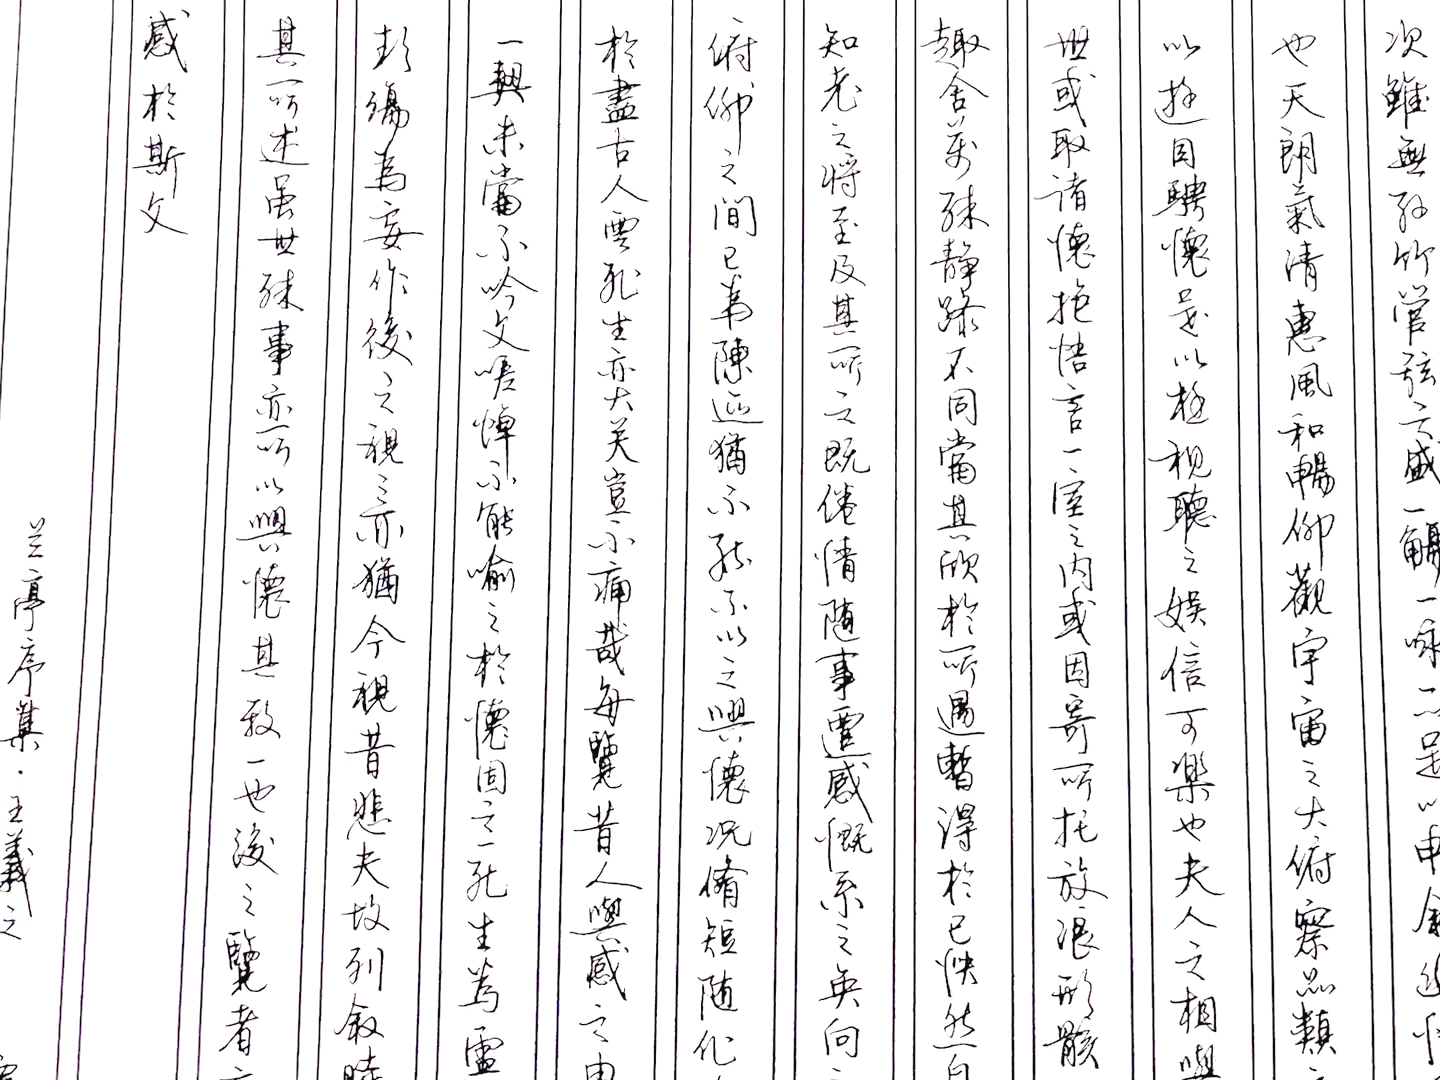 次雖無絲竹管弦之盛一觴一詠亦足以申敘幽情
也天朗氣清惠風和暢仰觀宇宙之大俯察品類之
以遊目騁懷是以極視聽之娛信可樂也夫人之相與
世或取諸懷抱悟言一室之内或因寄所托放浪形骸
趣舍萬殊静躁不同當其欣於所遇暫得於己怏然自
知老之将至及其所之既倦情随事遷感慨系之矣向之
俯仰之間已為陳迹猶不能不以之興懷况脩短随化
於盡古人雲死生亦大矣豈不痛哉每覽昔人興感之由
一契未嘗不吟文嗟悼不能喻之於懷固知一死生為虛
彭殤為妄作後之視今亦猶今視昔悲夫故列叙時
其所述虽世殊事亦所以興懷其致一也後之覽者亦
感於斯文
兰亭序集·王義之